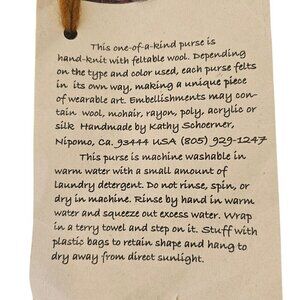 This one-of-a-kind purse is
hand-knit with feltable wool. Depending
on the type and color used, each purse felts
in its own way, making a unique piece
of wearable art. Embellishments may con-
tain wool, mohair, rayon, poly, acrylic or
silk Handmade by Kathy Schoerner,
Nipomo, Ca. 93444 USA (805) 929-1247
This purse is machine washable in
warm water with a small amount of
laundry detergent. Do not rinse, spin, or
dry in machine. Rinse by hand in warm
water and squeeze out excess water. Wrap
in a terry towel and step on it. Stuff with
plastic bags to retain shape and hang to
dry away from direct sunlight.